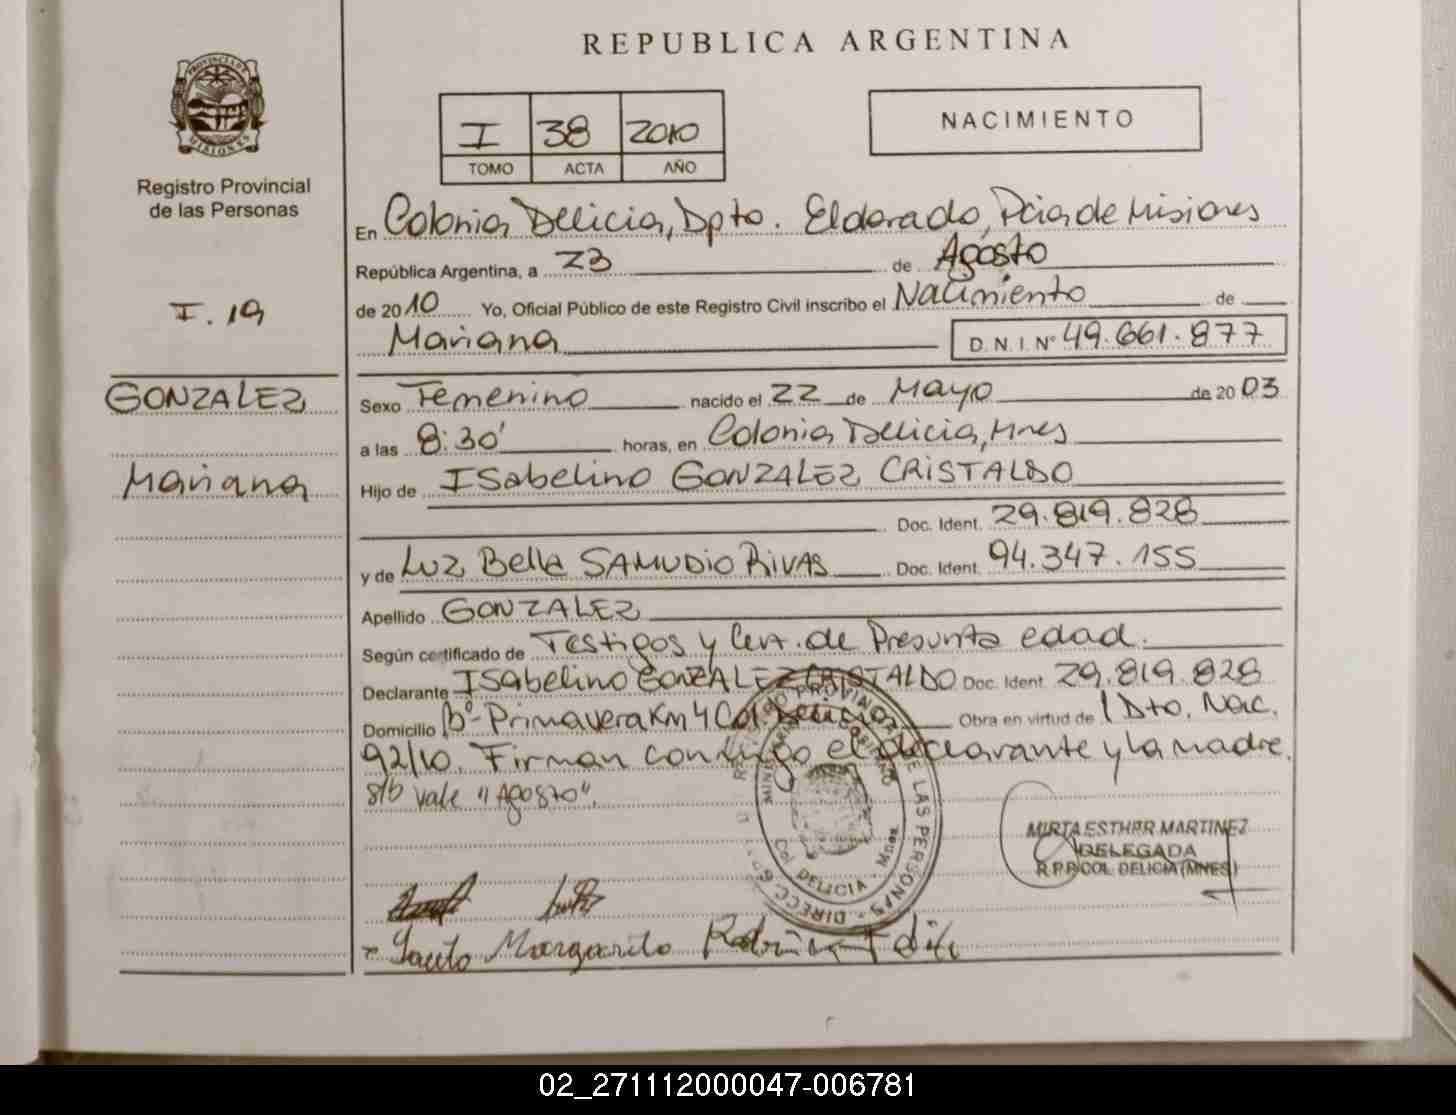 REPUBLICA ARGENTINA
PROVINCIA DE
MISIONES
Registro Provincial
de las Personas
I 38 2010
TOMO ACTA AÑO
NACIMIENTO
En Colonia Delicia, Dpto. Eldorado, Pcia de Misiones
República Argentina, a 23 de Agosto
de 2010 Yo, Oficial Público de este Registro Civil inscribo el Nacimiento de
I. 19
Mariana D. N. I. Nº 49.661.877
GONZALEZ
Sexo Femenino nacido el 22 de Mayo de 2003
a las 8:30' horas, en Colonia Delicia, Mnes
Mariana
Hijo de ISabelino GONZALEZ CRISTALDO
Doc. Ident. 29.819.828
y de Luz Bella SAMUDIO RIVAS Doc. Ident. 94.347.155
Apellido GONZALEZ
Según certificado de Testigos y Cert. de Presunta edad.
Declarante ISabelino GONZALEZ CRISTALDO Doc. Ident. 29.819.828
Domicilio Bº Primavera Km 4 Col. Delicia Obra en virtud de Dto. Nac.
92/10. Firman conmigo el declarante y la madre.
s/b vale "Agosto".
MIRTA ESTHER MARTINEZ
DELEGADA
R.P.P. COL. DELICIA (MNES)
Margarito
02_271112000047-006781